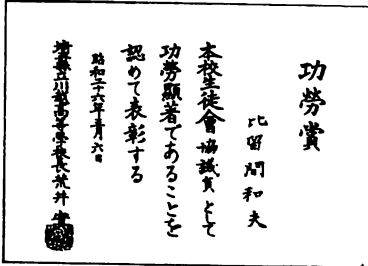 功勞賞
比留間和夫
本校生徒會協議員として
功勞顯著であることを
認めて表彰する
昭和二十六年三月六日
埼玉縣立川越高等學校長荒井